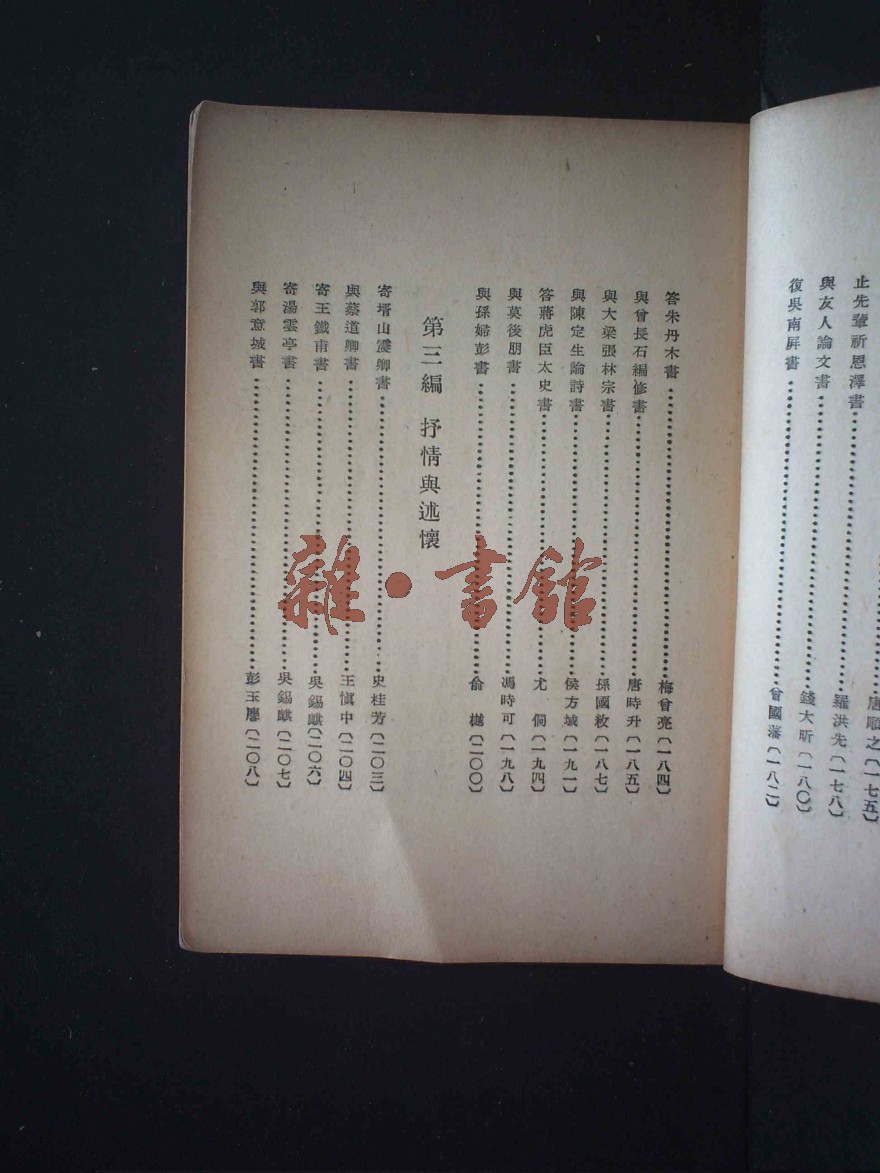 止先輩祈恩澤書……唐順之(一七五)
羅洪先(一七八)
與友人論文書……錢大昕(一八〇)
復吳南屏書……曾國藩(一八二)
答朱丹木書……梅曾亮(一八四)
與曾長石編修書……唐時升(一八五)
與大梁張林宗書……孫國敉(一八七)
與陳定生論詩書……侯方域(一九一)
答蔣虎臣太史書……尤侗(一九四)
與莫後朋書……馮時可(一九八)
與孫婦彭書……俞樾(二〇〇)
第三編 抒情與述懷
寄壻山震卿書……史桂芳(二〇三)
與蔡道卿書……王愼中(二〇四)
寄王鐵甫書……吳錫麒(二〇六)
寄湯雲亭書……吳錫麒(二〇七)
與郭意城書……彭玉麐(二〇八)
雜·書館